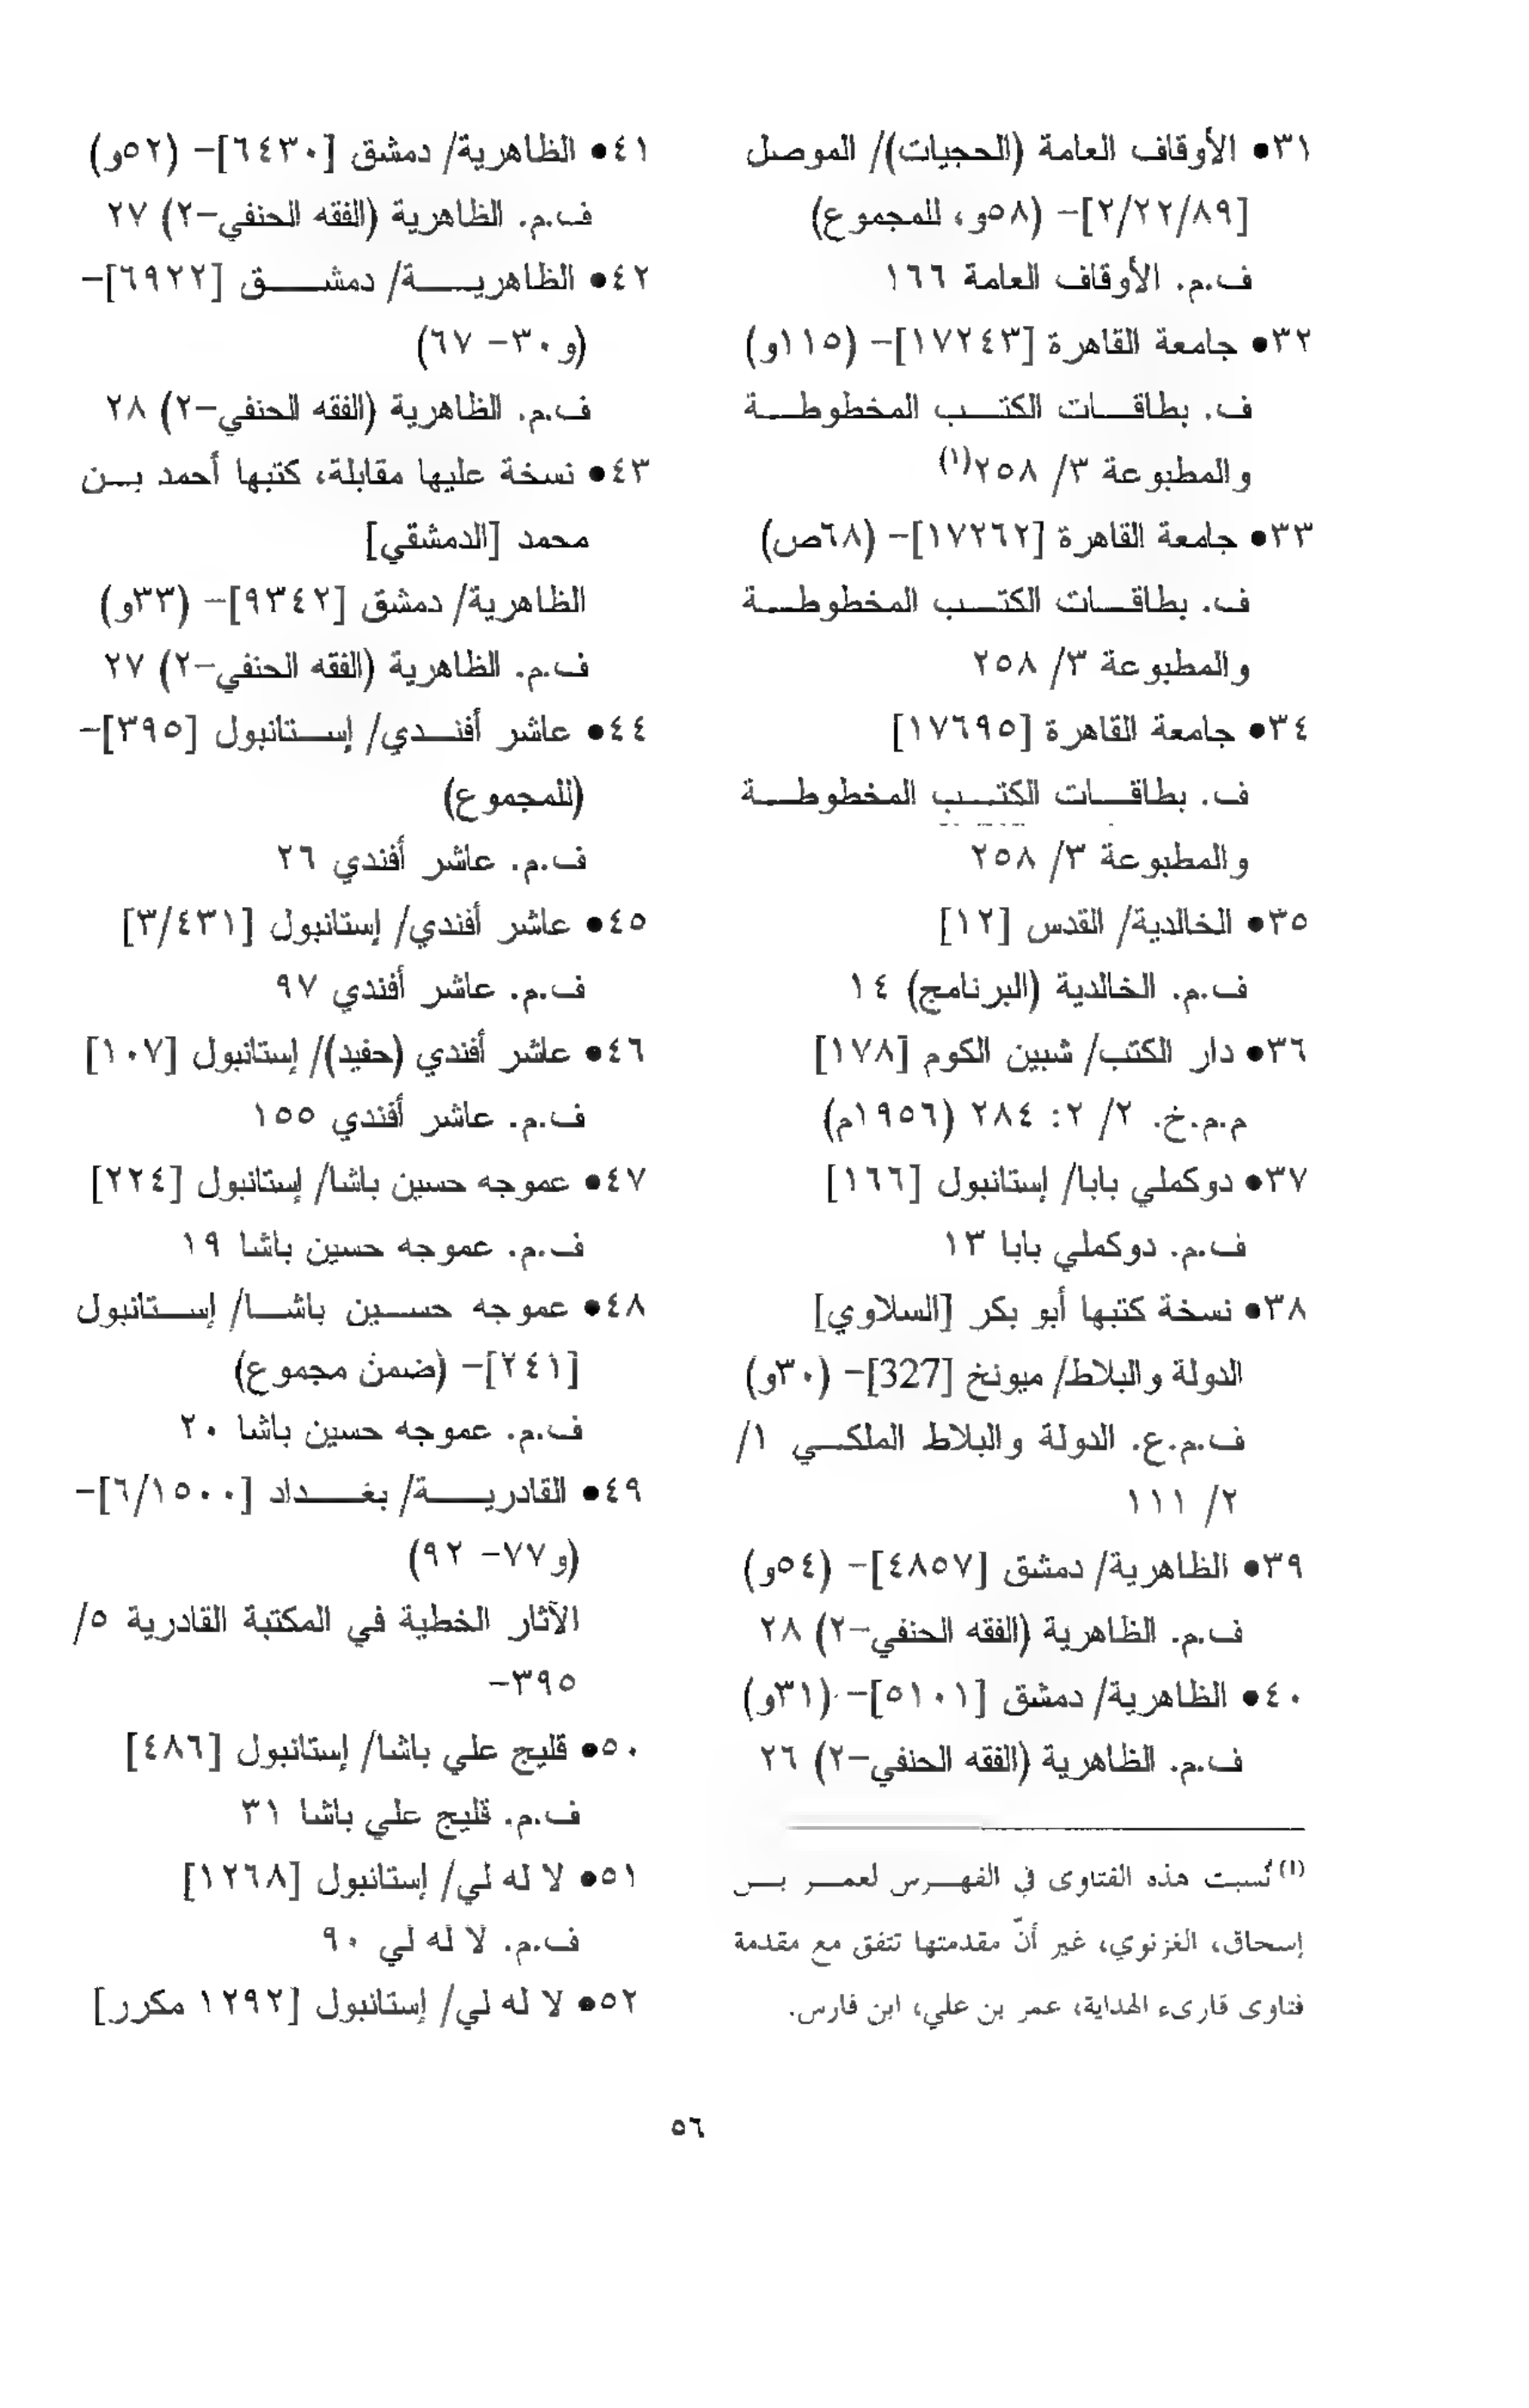 ٣١● الأوقاف العامة (الحجيات)/ الموصل
[٢/٢٢/٨٩]- (٥٨و، للمجموع)
ف.م. الأوقاف العامة ١٦٦
٣٢● جامعة القاهرة [١٧٢٤٣]- (١١٥و)
ف. بطاقات الكتب المخطوطة
والمطبوعة ٣/ ٢٥٨(١)
٣٣● جامعة القاهرة [١٧٢٦٢]- (٦٨ص)
ف. بطاقات الكتب المخطوطة
والمطبوعة ٣/ ٢٥٨
٣٤● جامعة القاهرة [١٧٦٩٥]
ف. بطاقات الكتب المخطوطة
والمطبوعة ٣/ ٢٥٨
٣٥● الخالدية/ القدس [١٢]
ف.م. الخالدية (البرنامج) ١٤
٣٦● دار الكتب/ شبين الكوم [١٧٨]
م.م.خ. ٢/ ٢: ٢٨٤ (١٩٥٦م)
٣٧● دوكملي بابا/ إستانبول [١٦٦]
ف.م. دوكملي بابا ١٣
٣٨● نسخة كتبها أبو بكر [السلاوي]
الدولة والبلاط/ ميونخ [327]- (٣٠و)
ف.م.ع. الدولة والبلاط الملكي ١/
٢/ ١١١
٣٩● الظاهرية/ دمشق [٤٨٥٧]- (٥٤و)
ف.م. الظاهرية (الفقه الحنفي-٢) ٢٨
٤٠● الظاهرية/ دمشق [٥١٠١]- (٣١و)
ف.م. الظاهرية (الفقه الحنفي-٢) ٢٦
(١) نُسبت هذه الفتاوى في الفهرس لعمر بن
إسحاق، الغزنوي، غير أنّ مقدمتها تتفق مع مقدمة
فتاوى قارىء الهداية، عمر بن علي، ابن فارس.
٤١● الظاهرية/ دمشق [٦٤٣٠]- (٥٢و)
ف.م. الظاهرية (الفقه الحنفي-٢) ٢٧
٤٢● الظاهرية/ دمشق [٦٩٢٢]-
(و٣٠- ٦٧)
ف.م. الظاهرية (الفقه الحنفي-٢) ٢٨
٤٣● نسخة عليها مقابلة، كتبها أحمد بن
محمد [الدمشقي]
الظاهرية/ دمشق [٩٣٤٢]- (٣٣و)
ف.م. الظاهرية (الفقه الحنفي-٢) ٢٧
٤٤● عاشر أفندي/ إستانبول [٣٩٥]-
(للمجموع)
ف.م. عاشر أفندي ٢٦
٤٥● عاشر أفندي/ إستانبول [٣/٤٣١]
ف.م. عاشر أفندي ٩٧
٤٦● عاشر أفندي (حفيد)/ إستانبول [١٠٧]
ف.م. عاشر أفندي ١٥٥
٤٧● عموجه حسين باشا/ إستانبول [٢٢٤]
ف.م. عموجه حسين باشا ١٩
٤٨● عموجه حسين باشا/ إستانبول
[٢٤١]- (ضمن مجموع)
ف.م. عموجه حسين باشا ٢٠
٤٩● القادرية/ بغداد [٦/١٥٠٠]-
(و٧٧- ٩٢)
الآثار الخطية في المكتبة القادرية ٥/
٣٩٥-
٥٠● قليج علي باشا/ إستانبول [٤٨٦]
ف.م. قليج علي باشا ٣١
٥١● لا له لي/ إستانبول [١٢٦٨]
ف.م. لا له لي ٩٠
٥٢● لا له لي/ إستانبول [١٢٩٢ مكرر]
٥٦